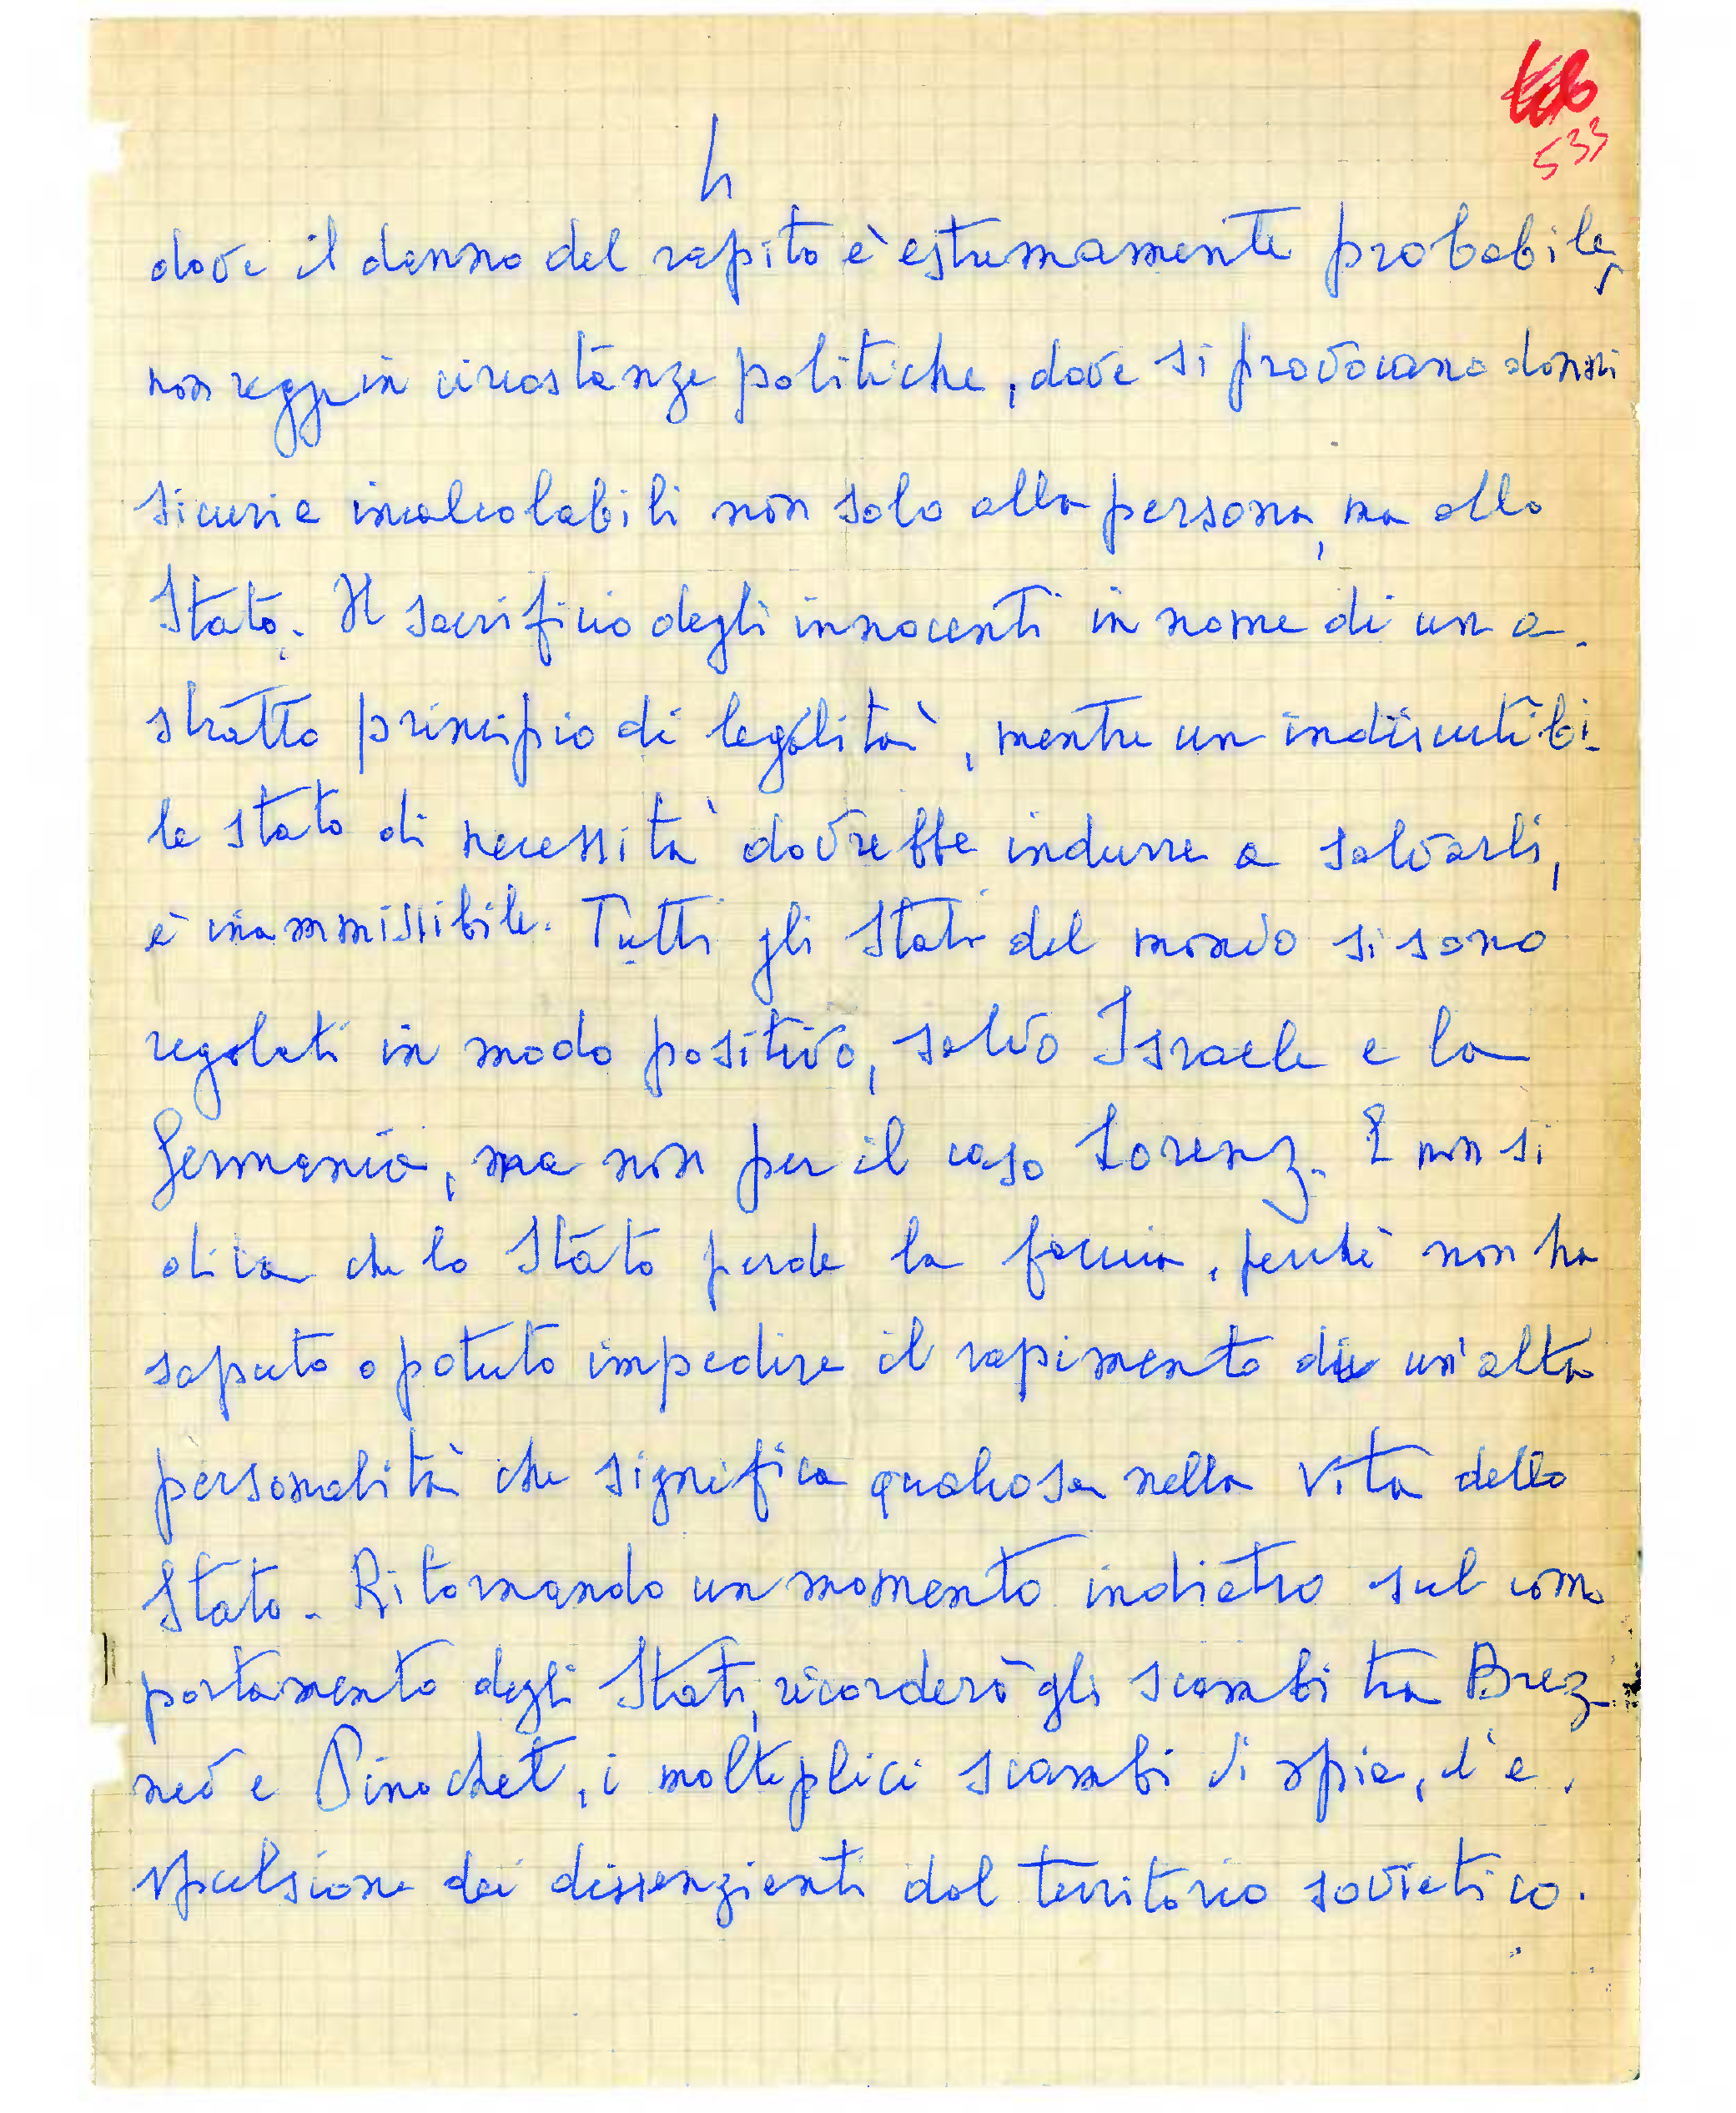 533
4
dove il danno del rapito è estremamente probabile,
non regge in circostanze politiche, dove si provocano danni
sicuri e incalcolabili non solo alla persona, ma allo
Stato. Il sacrificio degli innocenti in nome di un a-
stratto principio di legalità, mentre un indiscutibi-
le stato di necessità dovrebbe indurre a salvarli,
è inammissibile. Tutti gli Stati del mondo si sono
regolati in modo positivo, salvo Israele e la
Germania, ma non per il caso Lorenz. E non si
dica che lo Stato perde la faccia, perchè non ha
saputo o potuto impedire il rapimento di un'alta
personalità che significa qualcosa nella vita dello
Stato. Ritornando un momento indietro sul com
portamento degli Stati, ricorderò gli scambi tra Brez-
nev e Pinochet, i molteplici scambi di spie, l'e-
spulsione dei dissenzienti dal territorio sovietico.